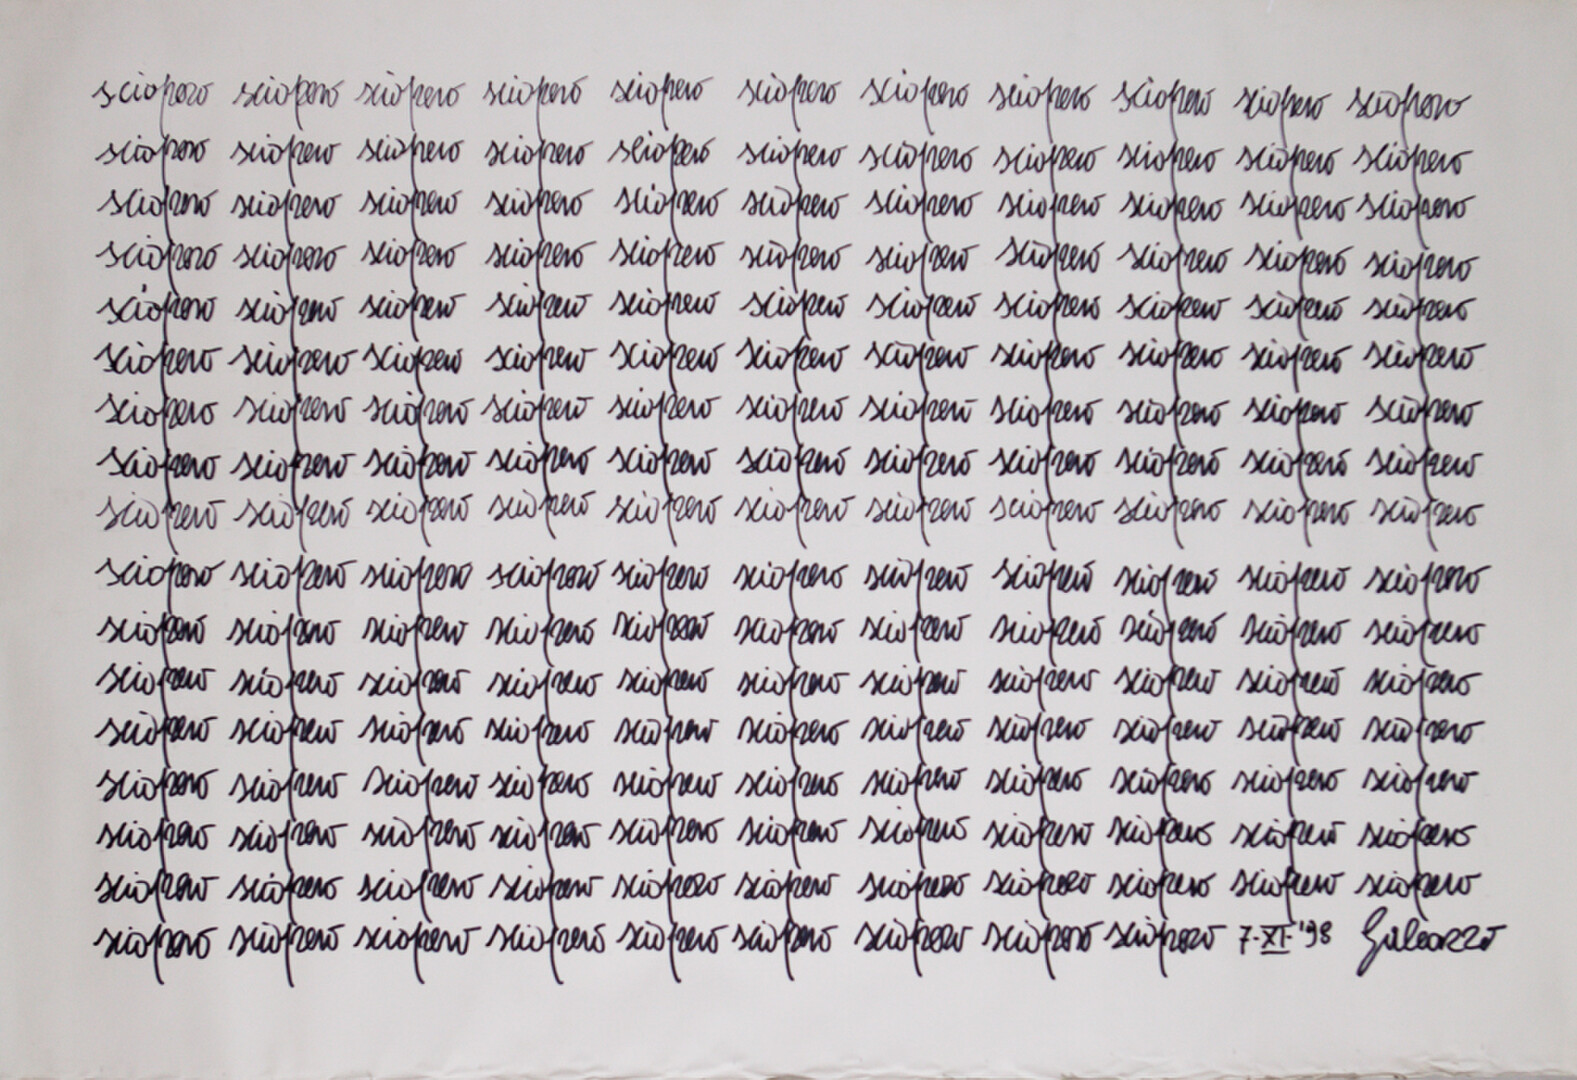 sciopero sciopero sciopero sciopero sciopero sciopero sciopero sciopero sciopero sciopero sciopero
sciopero sciopero sciopero sciopero sciopero sciopero sciopero sciopero sciopero sciopero sciopero
sciopero sciopero sciopero sciopero sciopero sciopero sciopero sciopero sciopero sciopero sciopero
sciopero sciopero sciopero sciopero sciopero sciopero sciopero sciopero sciopero sciopero sciopero
sciopero sciopero sciopero sciopero sciopero sciopero sciopero sciopero sciopero sciopero sciopero
sciopero sciopero sciopero sciopero sciopero sciopero sciopero sciopero sciopero sciopero sciopero
sciopero sciopero sciopero sciopero sciopero sciopero sciopero sciopero sciopero sciopero sciopero
sciopero sciopero sciopero sciopero sciopero sciopero sciopero sciopero sciopero sciopero sciopero
sciopero sciopero sciopero sciopero sciopero sciopero sciopero sciopero sciopero sciopero sciopero
sciopero sciopero sciopero sciopero sciopero sciopero sciopero sciopero sciopero sciopero sciopero
sciopero sciopero sciopero sciopero sciopero sciopero sciopero sciopero sciopero sciopero sciopero
sciopero sciopero sciopero sciopero sciopero sciopero sciopero sciopero sciopero sciopero sciopero
sciopero sciopero sciopero sciopero sciopero sciopero sciopero sciopero sciopero sciopero sciopero
sciopero sciopero sciopero sciopero sciopero sciopero sciopero sciopero sciopero sciopero sciopero
sciopero sciopero sciopero sciopero sciopero sciopero sciopero sciopero sciopero sciopero sciopero
sciopero sciopero sciopero sciopero sciopero sciopero sciopero sciopero sciopero sciopero sciopero
sciopero sciopero sciopero sciopero sciopero sciopero sciopero sciopero sciopero 7-XI-'98 Galeazzo